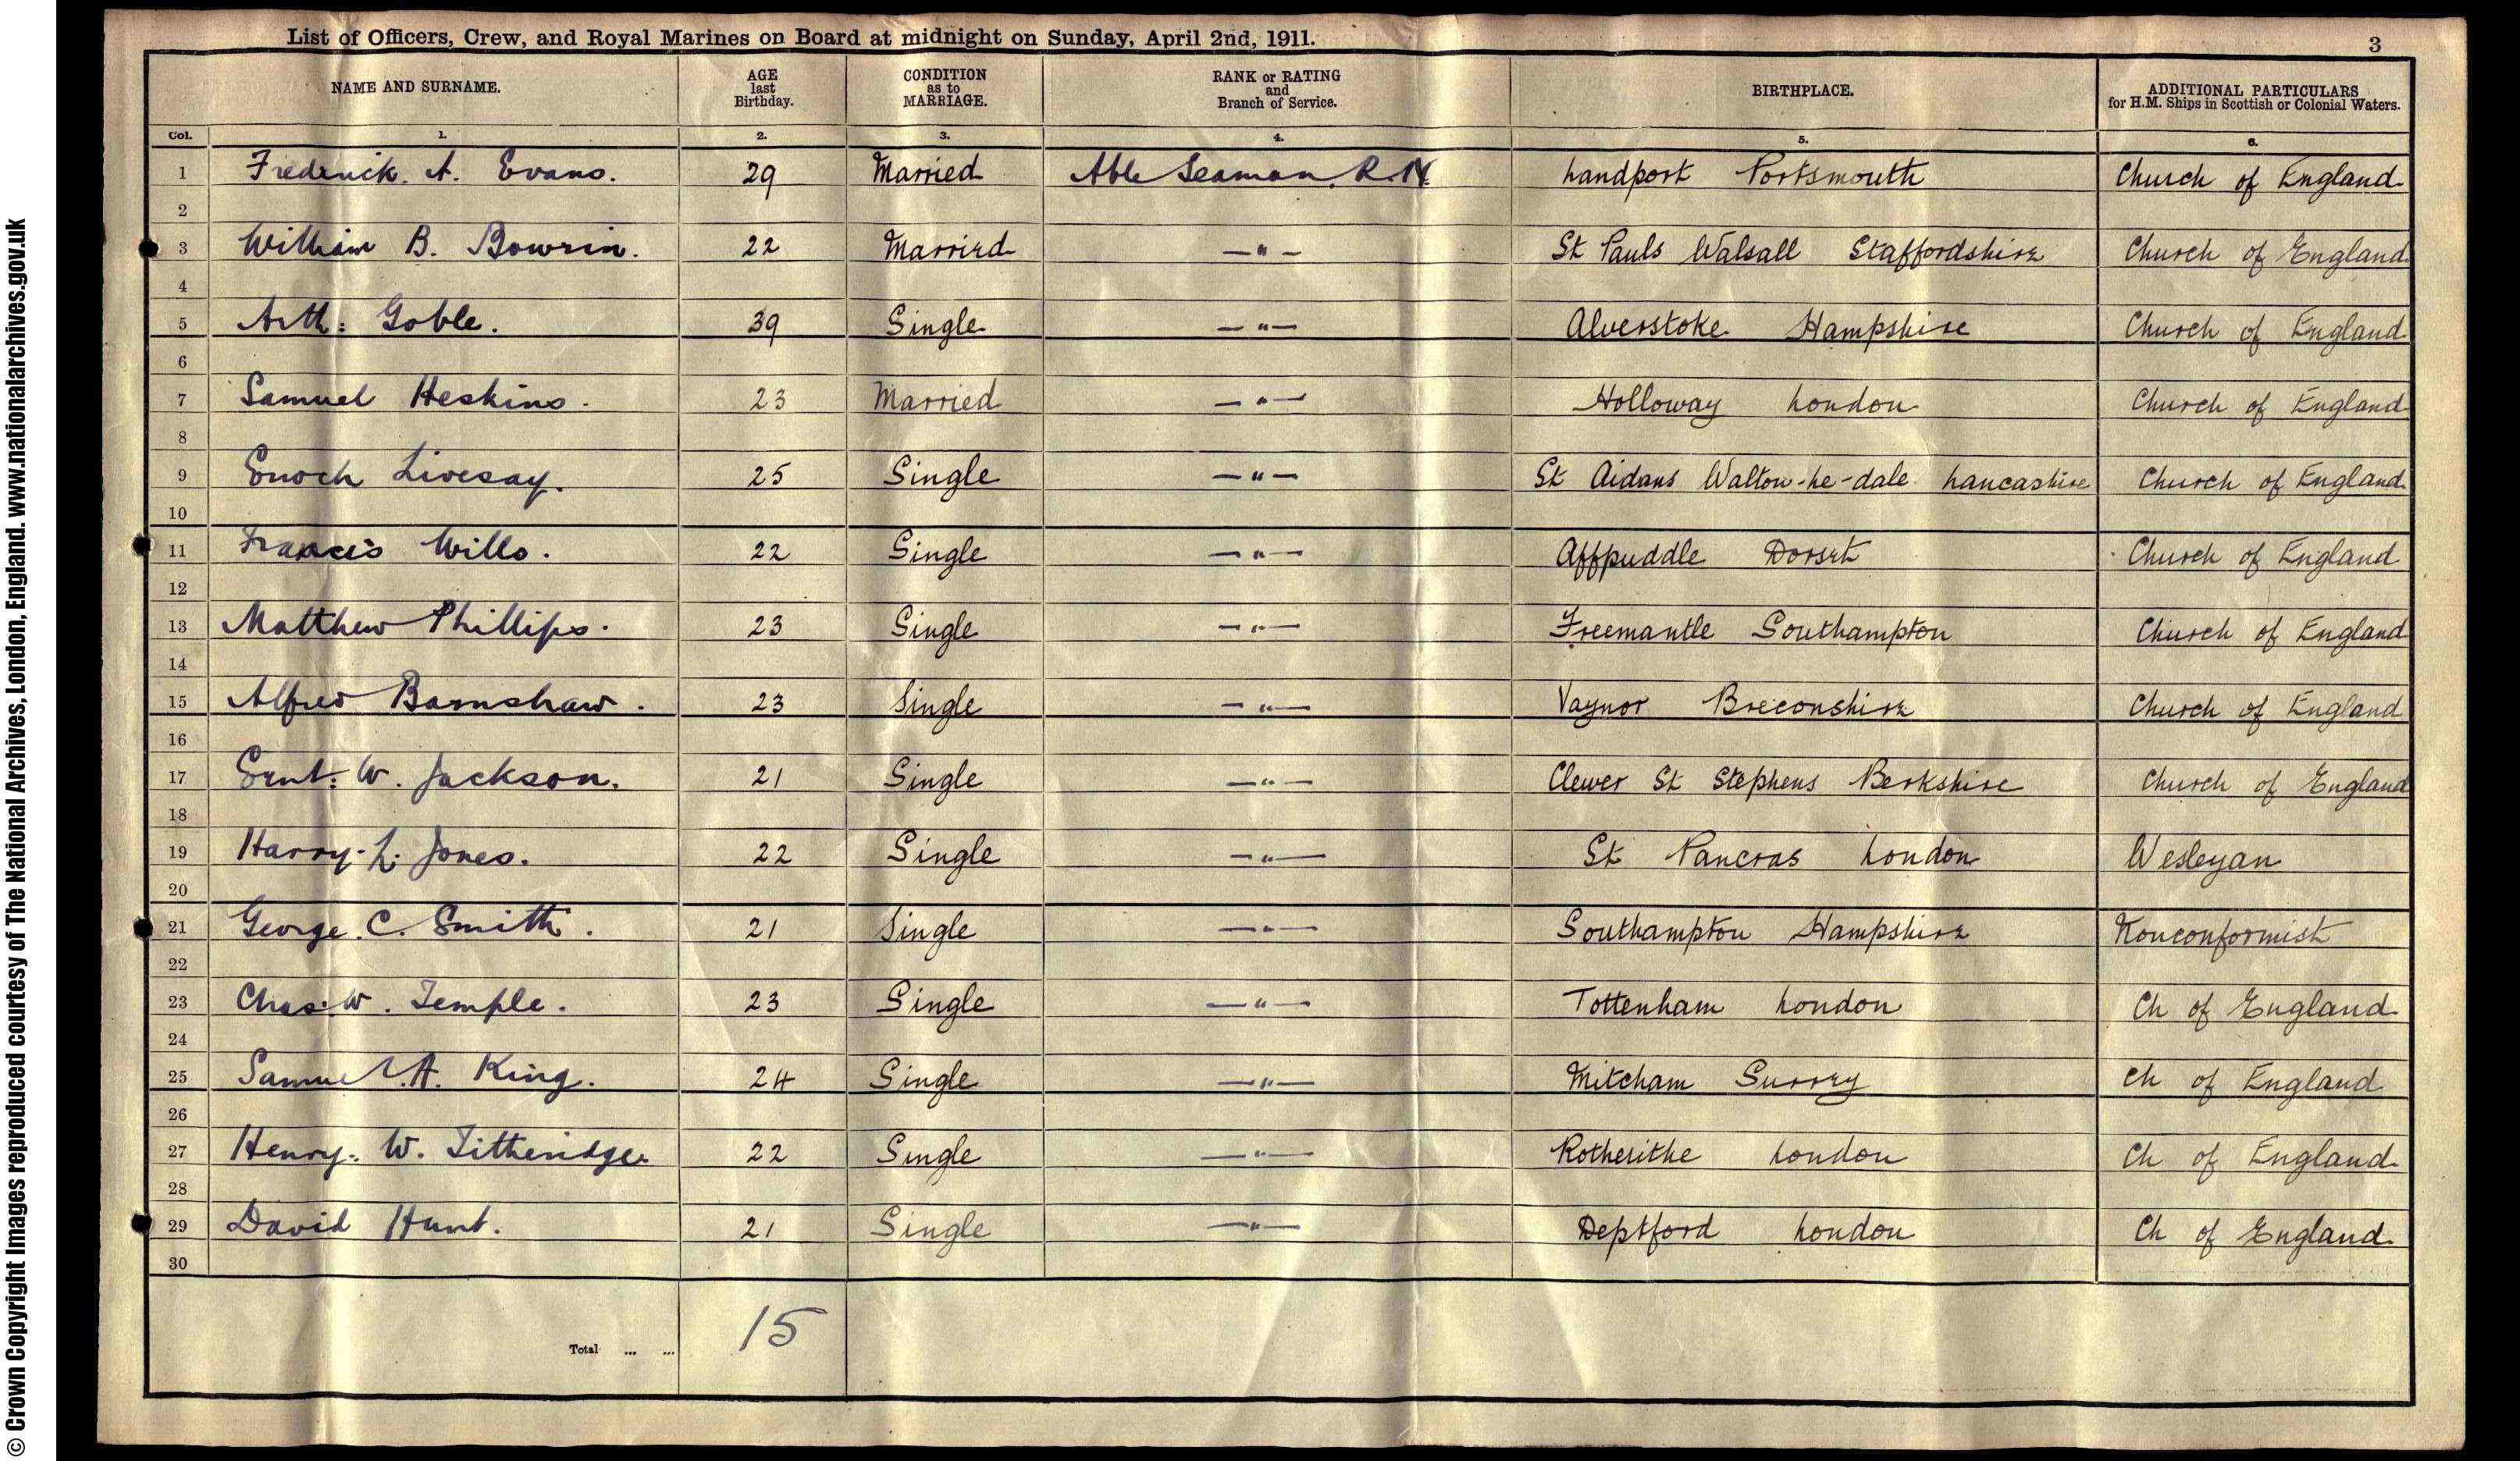 List of Officers, Crew, and Royal Marines on Board at midnight on Sunday, April 2nd, 1911.
3
NAME AND SURNAME. AGE last Birthday. CONDITION as to MARRIAGE. RANK or RATING and Branch of Service. BIRTHPLACE. ADDITIONAL PARTICULARS for H.M. Ships in Scottish or Colonial Waters.
Col. 1. 2. 3. 4. 5. 6.
1 Fredrick. A. Evans. 29 Married Able Seaman. R.N. Landport Portsmouth Church of England
2
3 William B. Bowrin. 22 Married — " — St Pauls Walsall Staffordshire Church of England
4
5 Arth: Goble. 39 Single — " — Alverstoke Hampshire Church of England
6
7 Samuel Heskins. 23 Married — " — Holloway London Church of England
8
9 Enoch Livesay. 25 Single — " — St Aidans Walton-le-dale Lancashire Church of England
10
11 Francis Wills. 22 Single — " — Affpuddle Dorset Church of England
12
13 Matthew Phillips. 23 Single — " — Freemantle Southampton Church of England
14
15 Alfred Barnshaw. 23 Single — " — Vaynor Breconshire Church of England
16
17 Ernt: W. Jackson. 21 Single — " — Clewer St Stephens Berkshire Church of England
18
19 Harry. L. Jones. 22 Single — " — St Pancras London Wesleyan
20
21 George. C. Smith. 21 Single — " — Southampton Hampshire Nonconformist
22
23 Chas: W. Temple. 23 Single — " — Tottenham London Ch of England
24
25 Samuel. A. King. 24 Single — " — Mitcham Surrey Ch of England
26
27 Henry. W. Titheridge 22 Single — " — Rotherithe London Ch of England
28
29 David Hunt. 21 Single — " — Deptford London Ch of England
30
Total ... ... 15
© Crown Copyright Images reproduced courtesy of The National Archives, London, England. www.nationalarchives.gov.uk